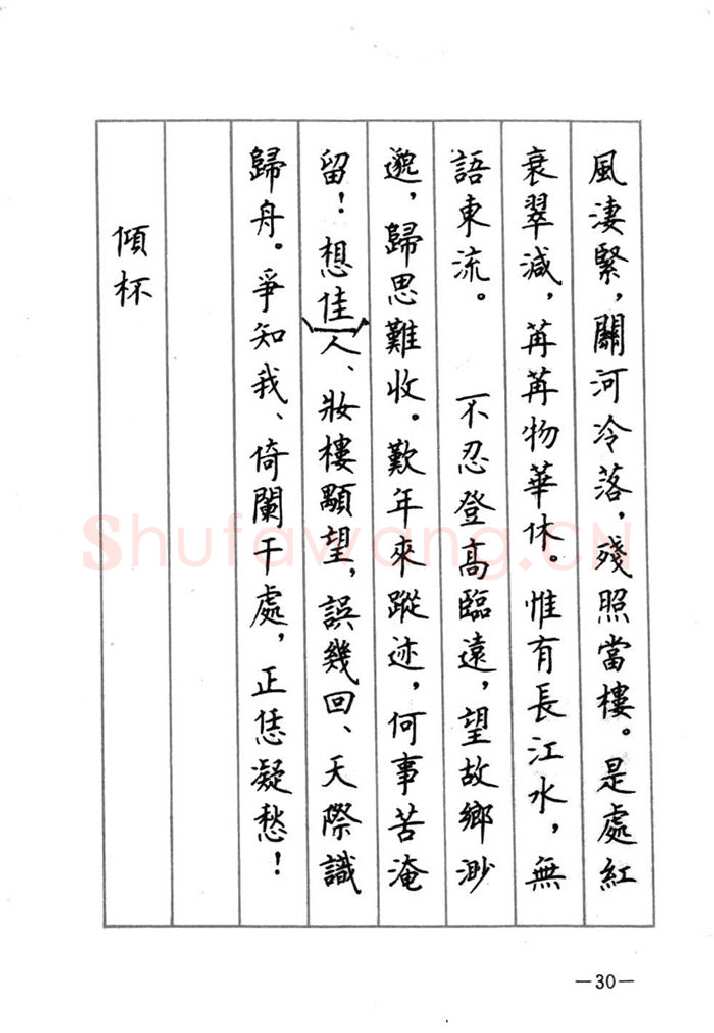 風淒緊，關河冷落，殘照當樓。是處紅
衰翠減，苒苒物華休。惟有長江水，無
語東流。　不忍登高臨遠，望故鄉渺
邈，歸思難收。歎年來蹤迹，何事苦淹
留！想佳人、妝樓顒望，誤幾回、天際識
歸舟。爭知我、倚闌干處，正恁凝愁！
傾杯
Shufawang.CN
—30—